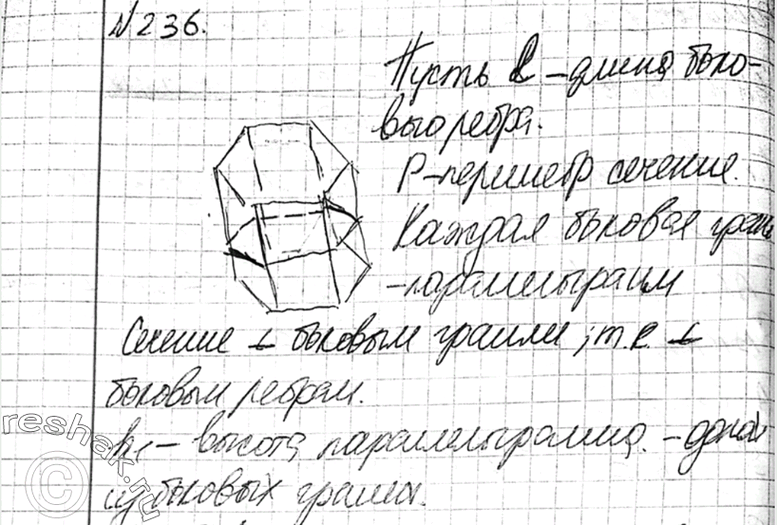 №236.
Пусть l - длина боко-
вого ребра.
P-периметр сечение.
Каждая боковая грань
-параллелограмм
Сечение ⊥ боковым граням; т.к ⊥
боковым ребрам.
h₁ - высота параллелограмма. - одной
из боковых граней.
reshak.ru